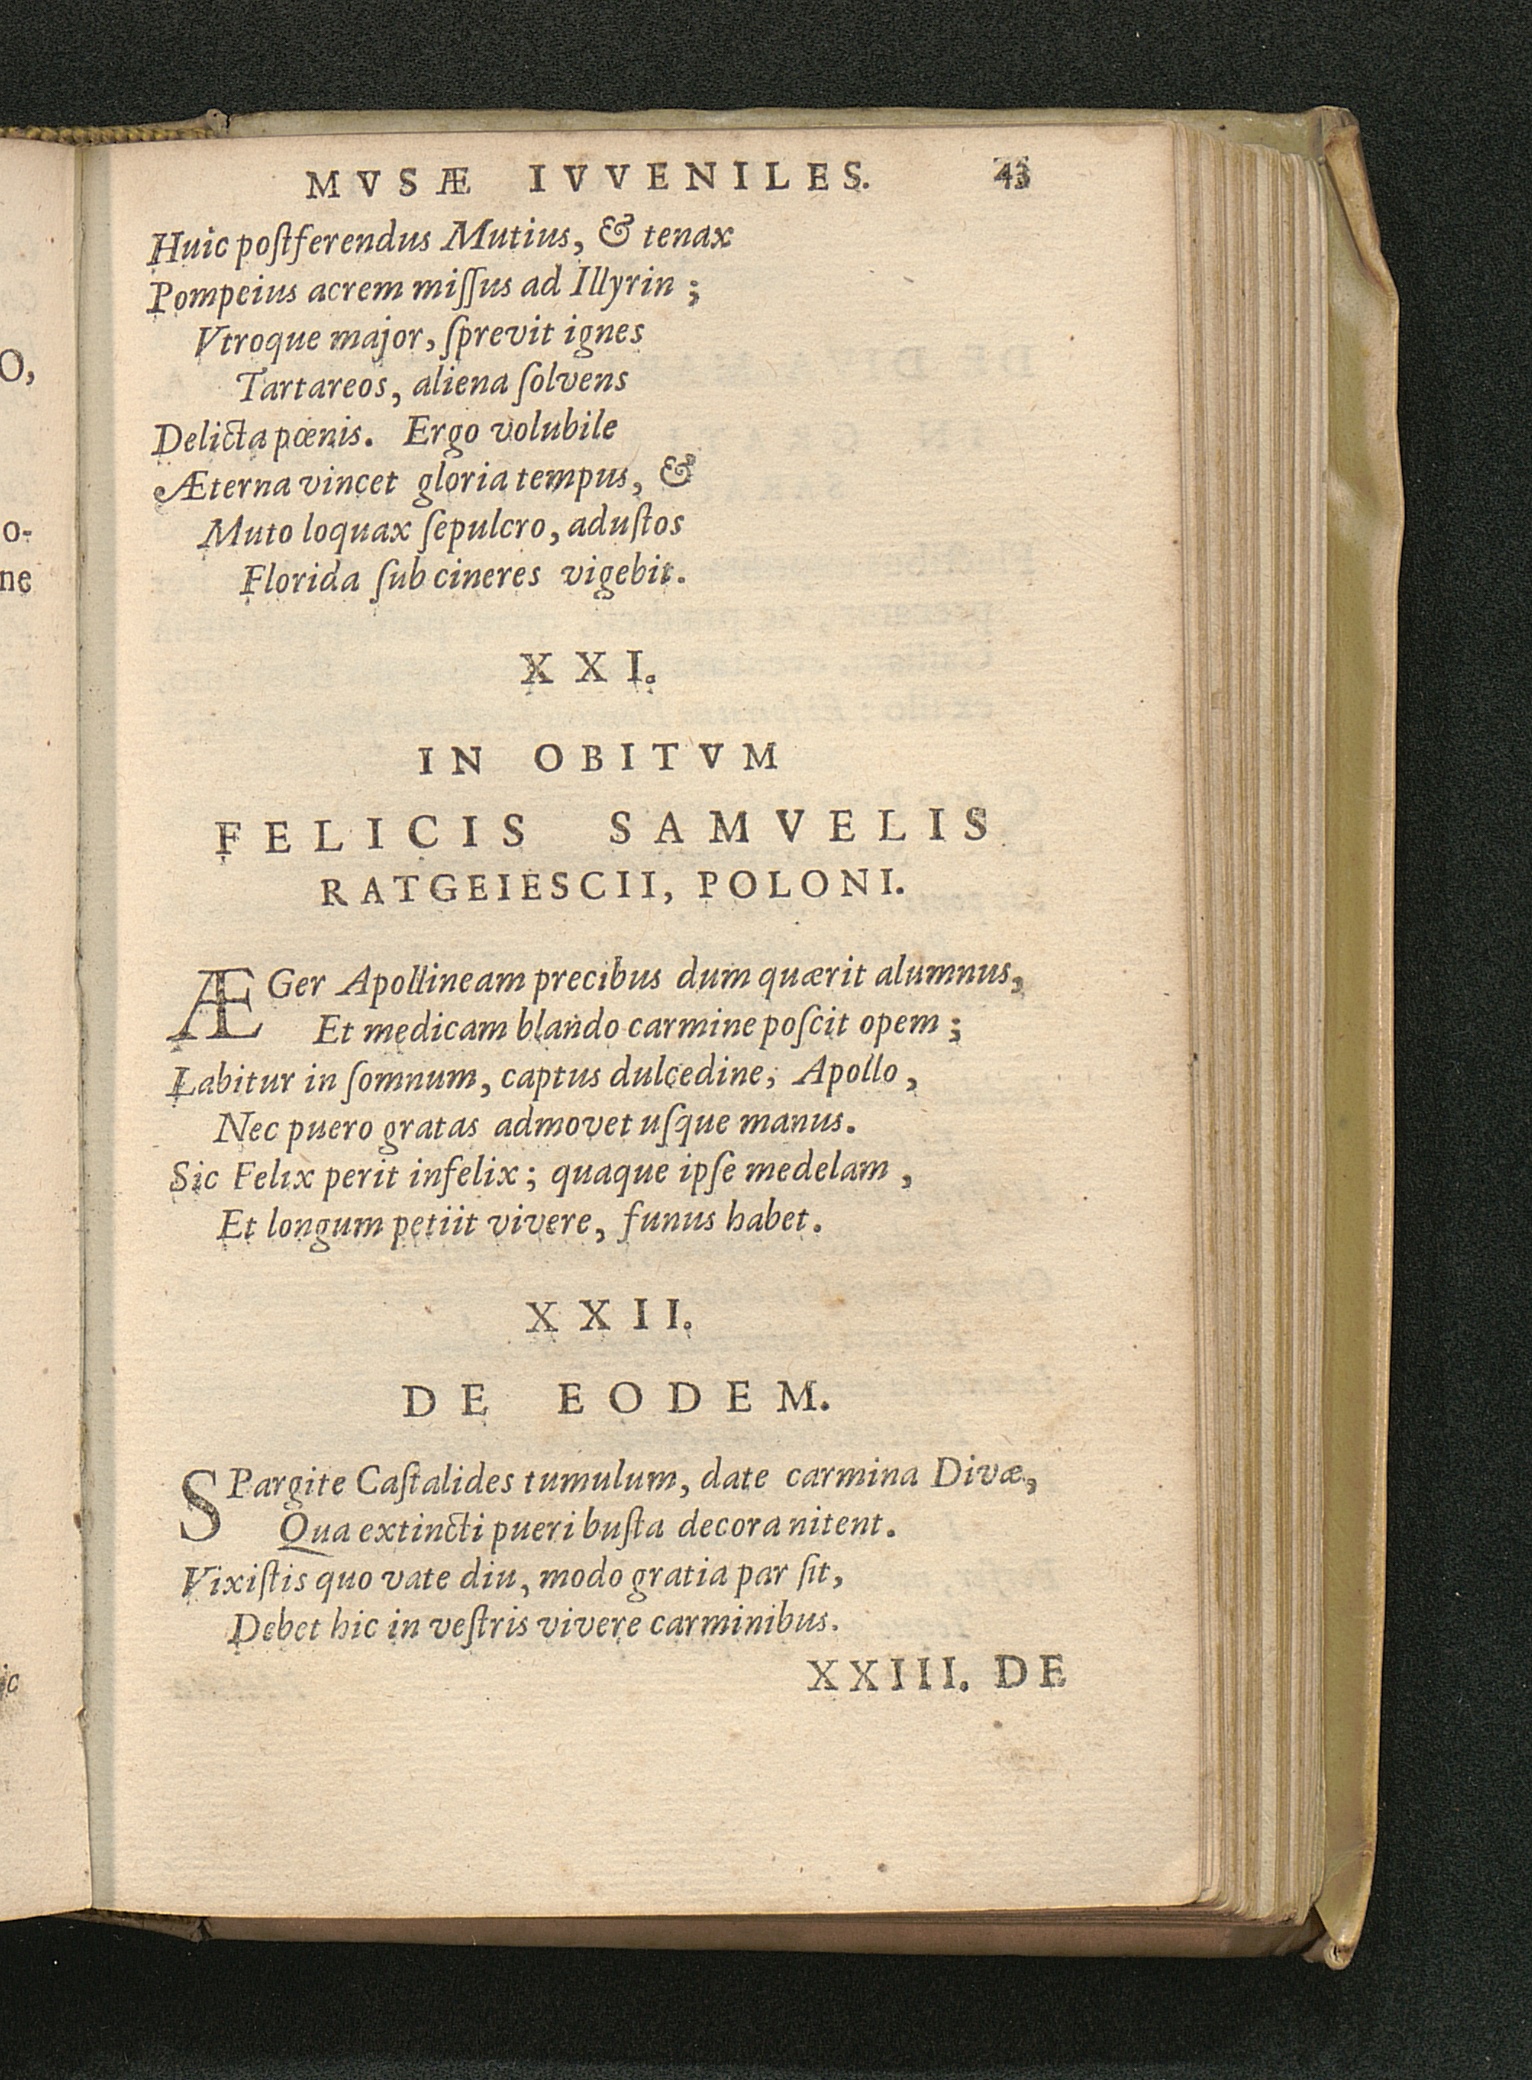 MVSÆ IVVENILES. 43
Huic poſtferendus Mutius, & tenax
Pompeius acrem miſſus ad Illyrin ;
Vtroque major, ſprevit ignes
Tartareos, aliena ſolvens
Delicta pœnis. Ergo volubile
Æterna vincet gloria tempus, &
Muto loquax ſepulcro, aduſtos
Florida ſub cineres vigebit.
XXI.
IN OBITVM
FELICIS SAMVELIS
RATGEIESCII, POLONI.
ÆGer Apollineam precibus dum quærit alumnus,
Et medicam blando carmine poſcit opem ;
Labitur in ſomnum, captus dulcedine, Apollo,
Nec puero gratas admovet uſque manus.
Sic Felix perit infelix ; quaque ipſe medelam,
Et longum petiit vivere, funus habet.
XXII.
DE EODEM.
SPargite Caſtalides tumulum, date carmina Divæ,
Qua extincti pueri buſta decora nitent.
Vixiſtis quo vate diu, modo gratia par ſit,
Debet hic in veſtris vivere carminibus.
XXIII. DE
O,
o-
ne